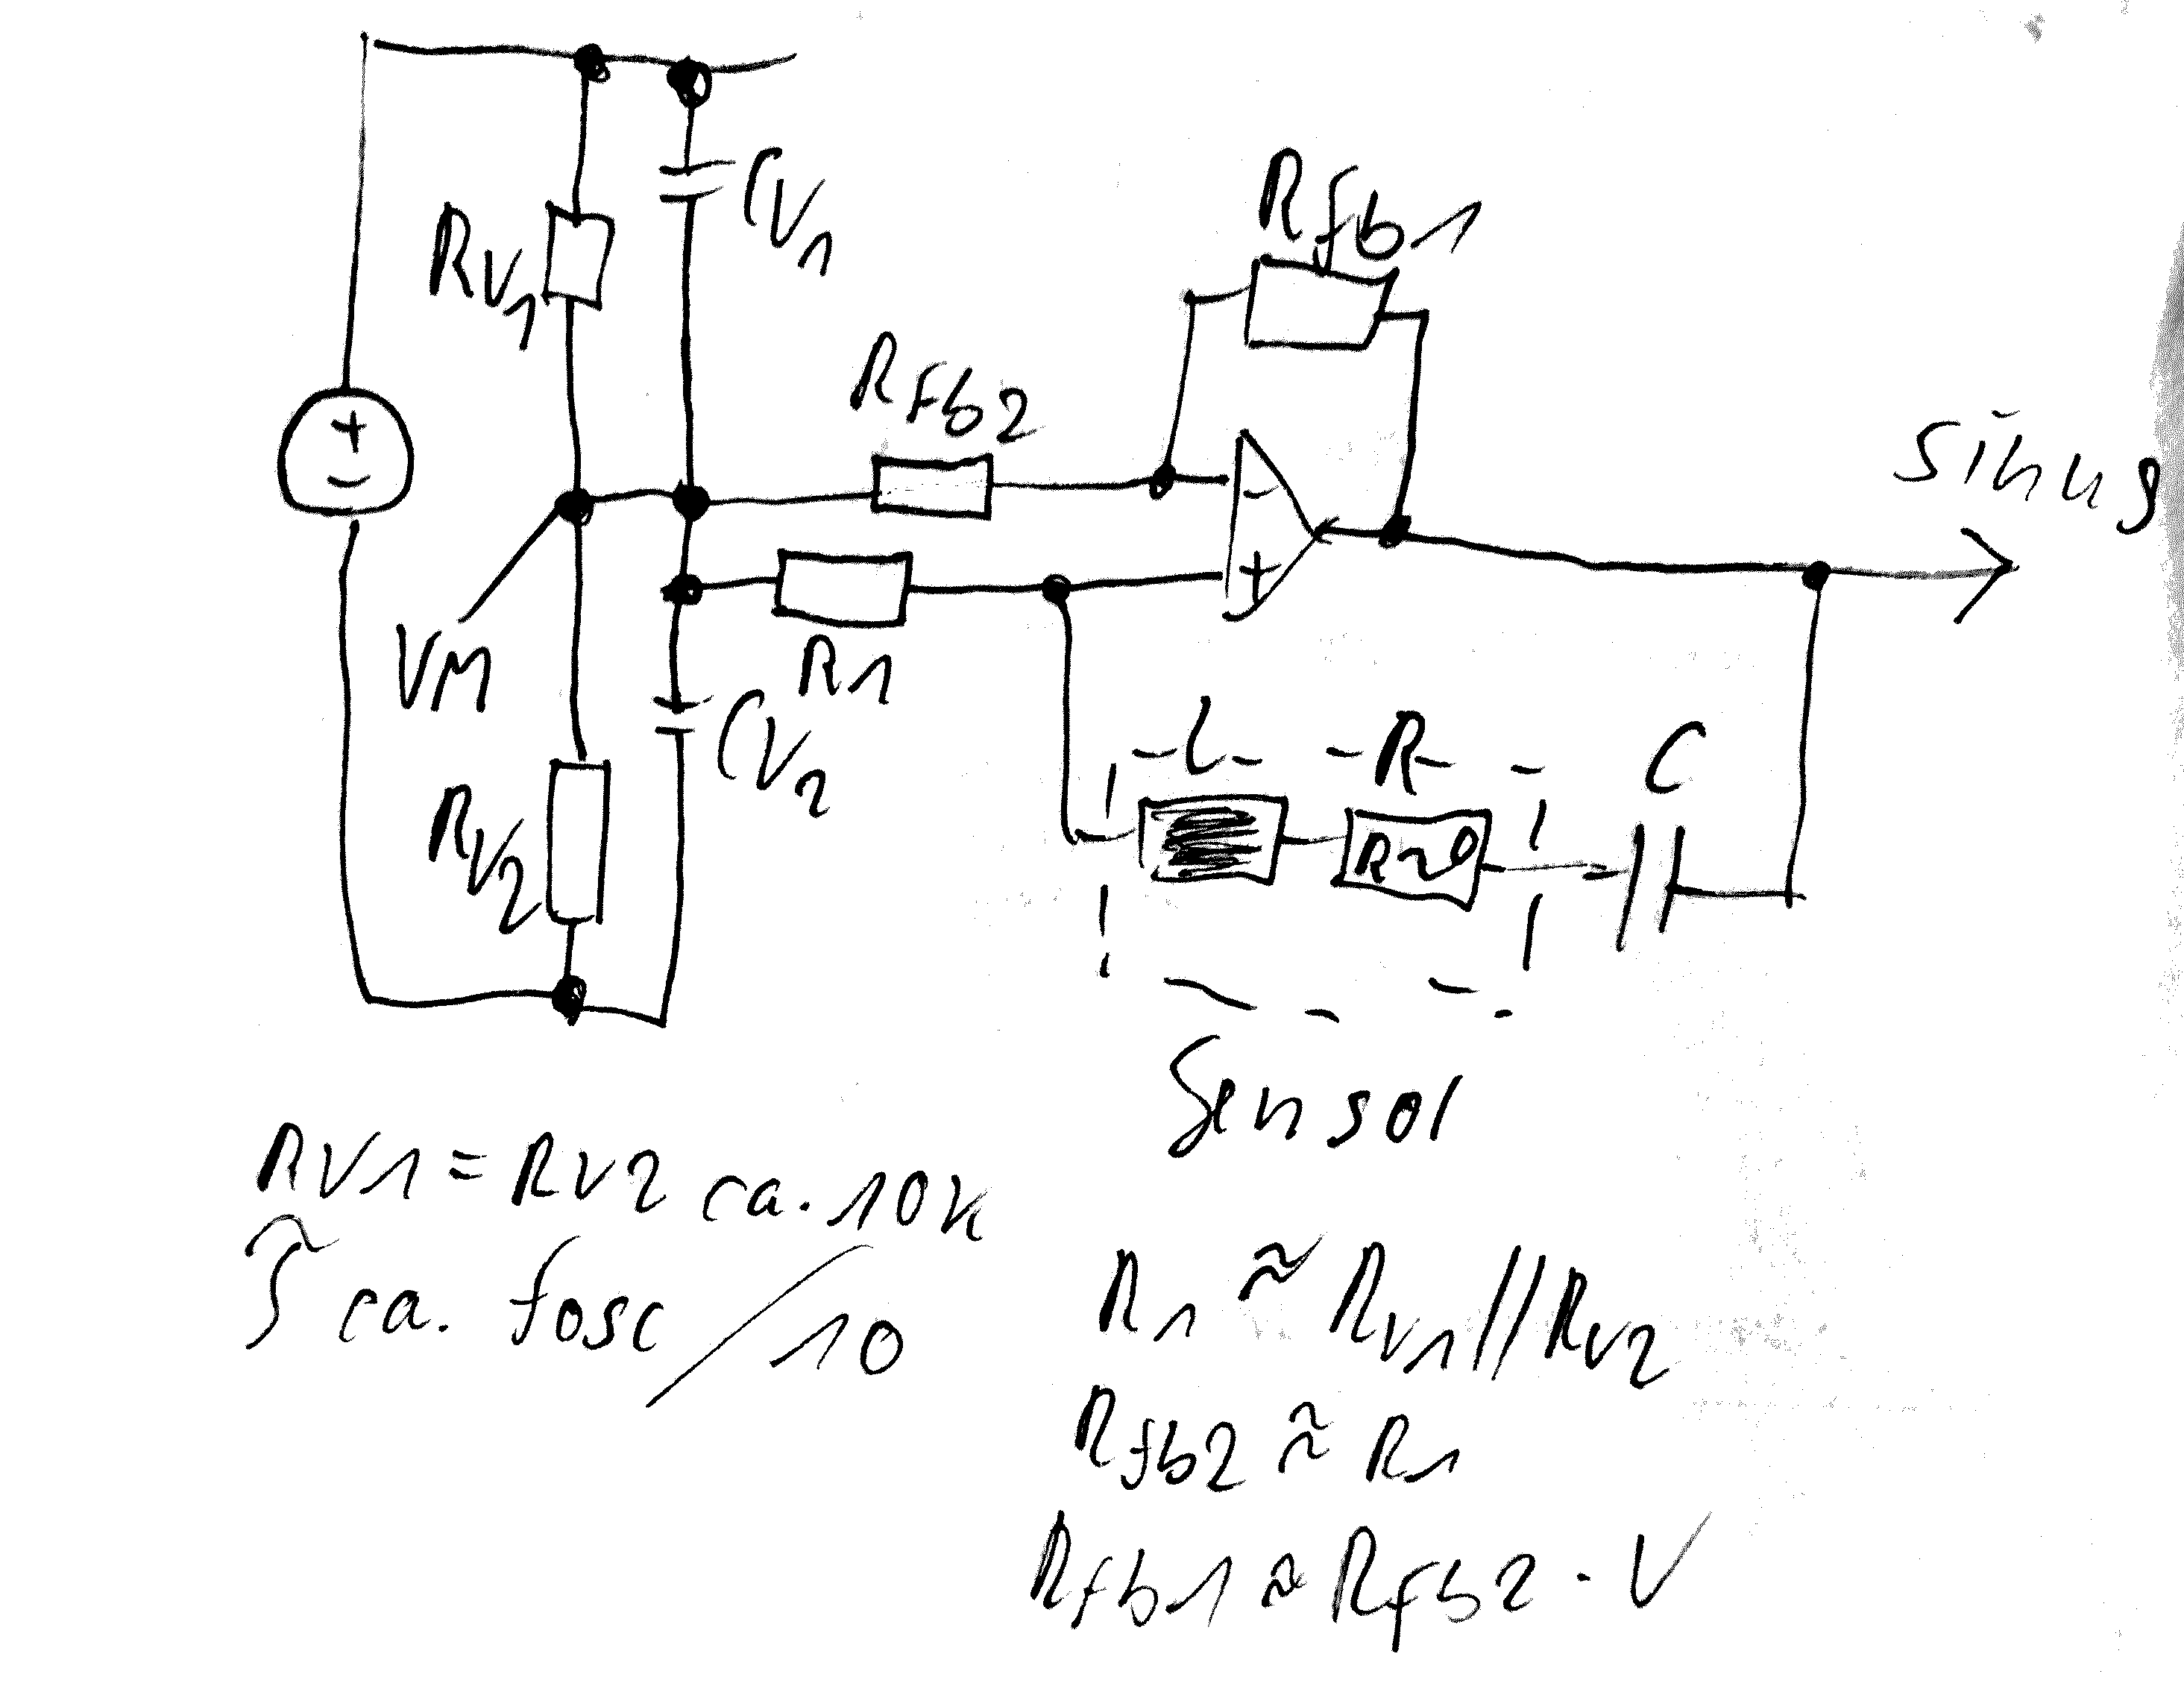 CV1
Rfb1
RV1
Rfb2
+
-
Sinus
-
+
VM
R1
L
R
C
CV2
RV2
R~0
Sensor
RV1 = RV2 ca. 10k
ca. fosc/10
R1 ≈ RV1 // RV2
Rfb2 ≈ R1
Rfb1 ≈ Rfb2 · V